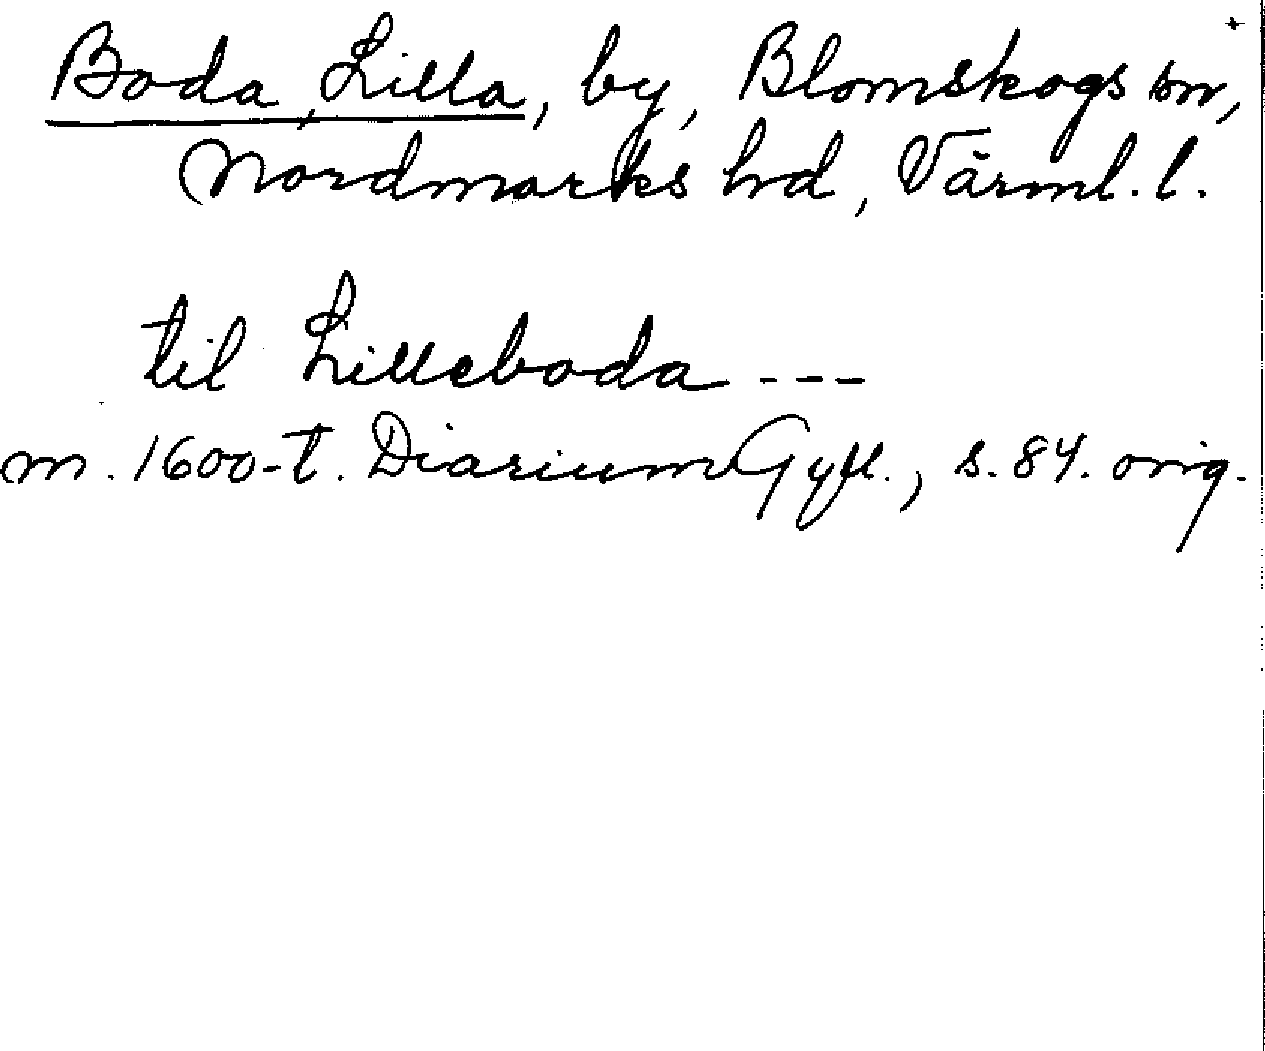 +
Boda, Lilla, by, Blomskogs sn,
Nordmarks hd, Värml. l.
til Lilleboda ---
m. 1600-t. Diarium Gyll., s. 84. orig.